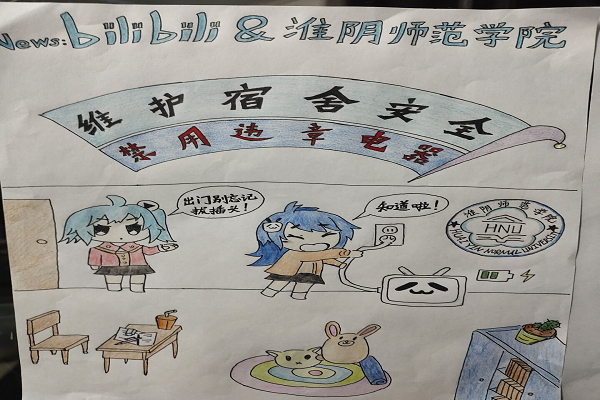 News: bilibili & 淮阴师范学院
维护宿舍安全
禁用违章电器
出门别忘记
拔插头!
知道啦!
淮阴师范学院
HNU
HUAIYIN NORMAL UNIVERSITY